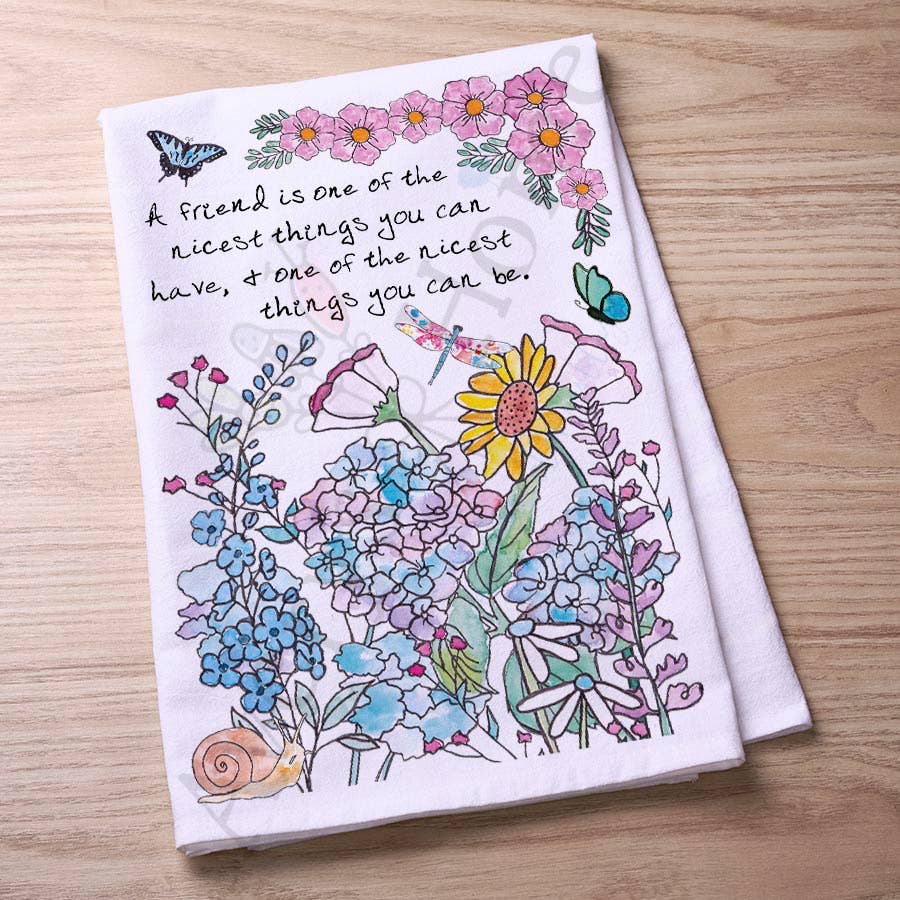 A friend is one of the
nicest things you can
have, & one of the nicest
things you can be.